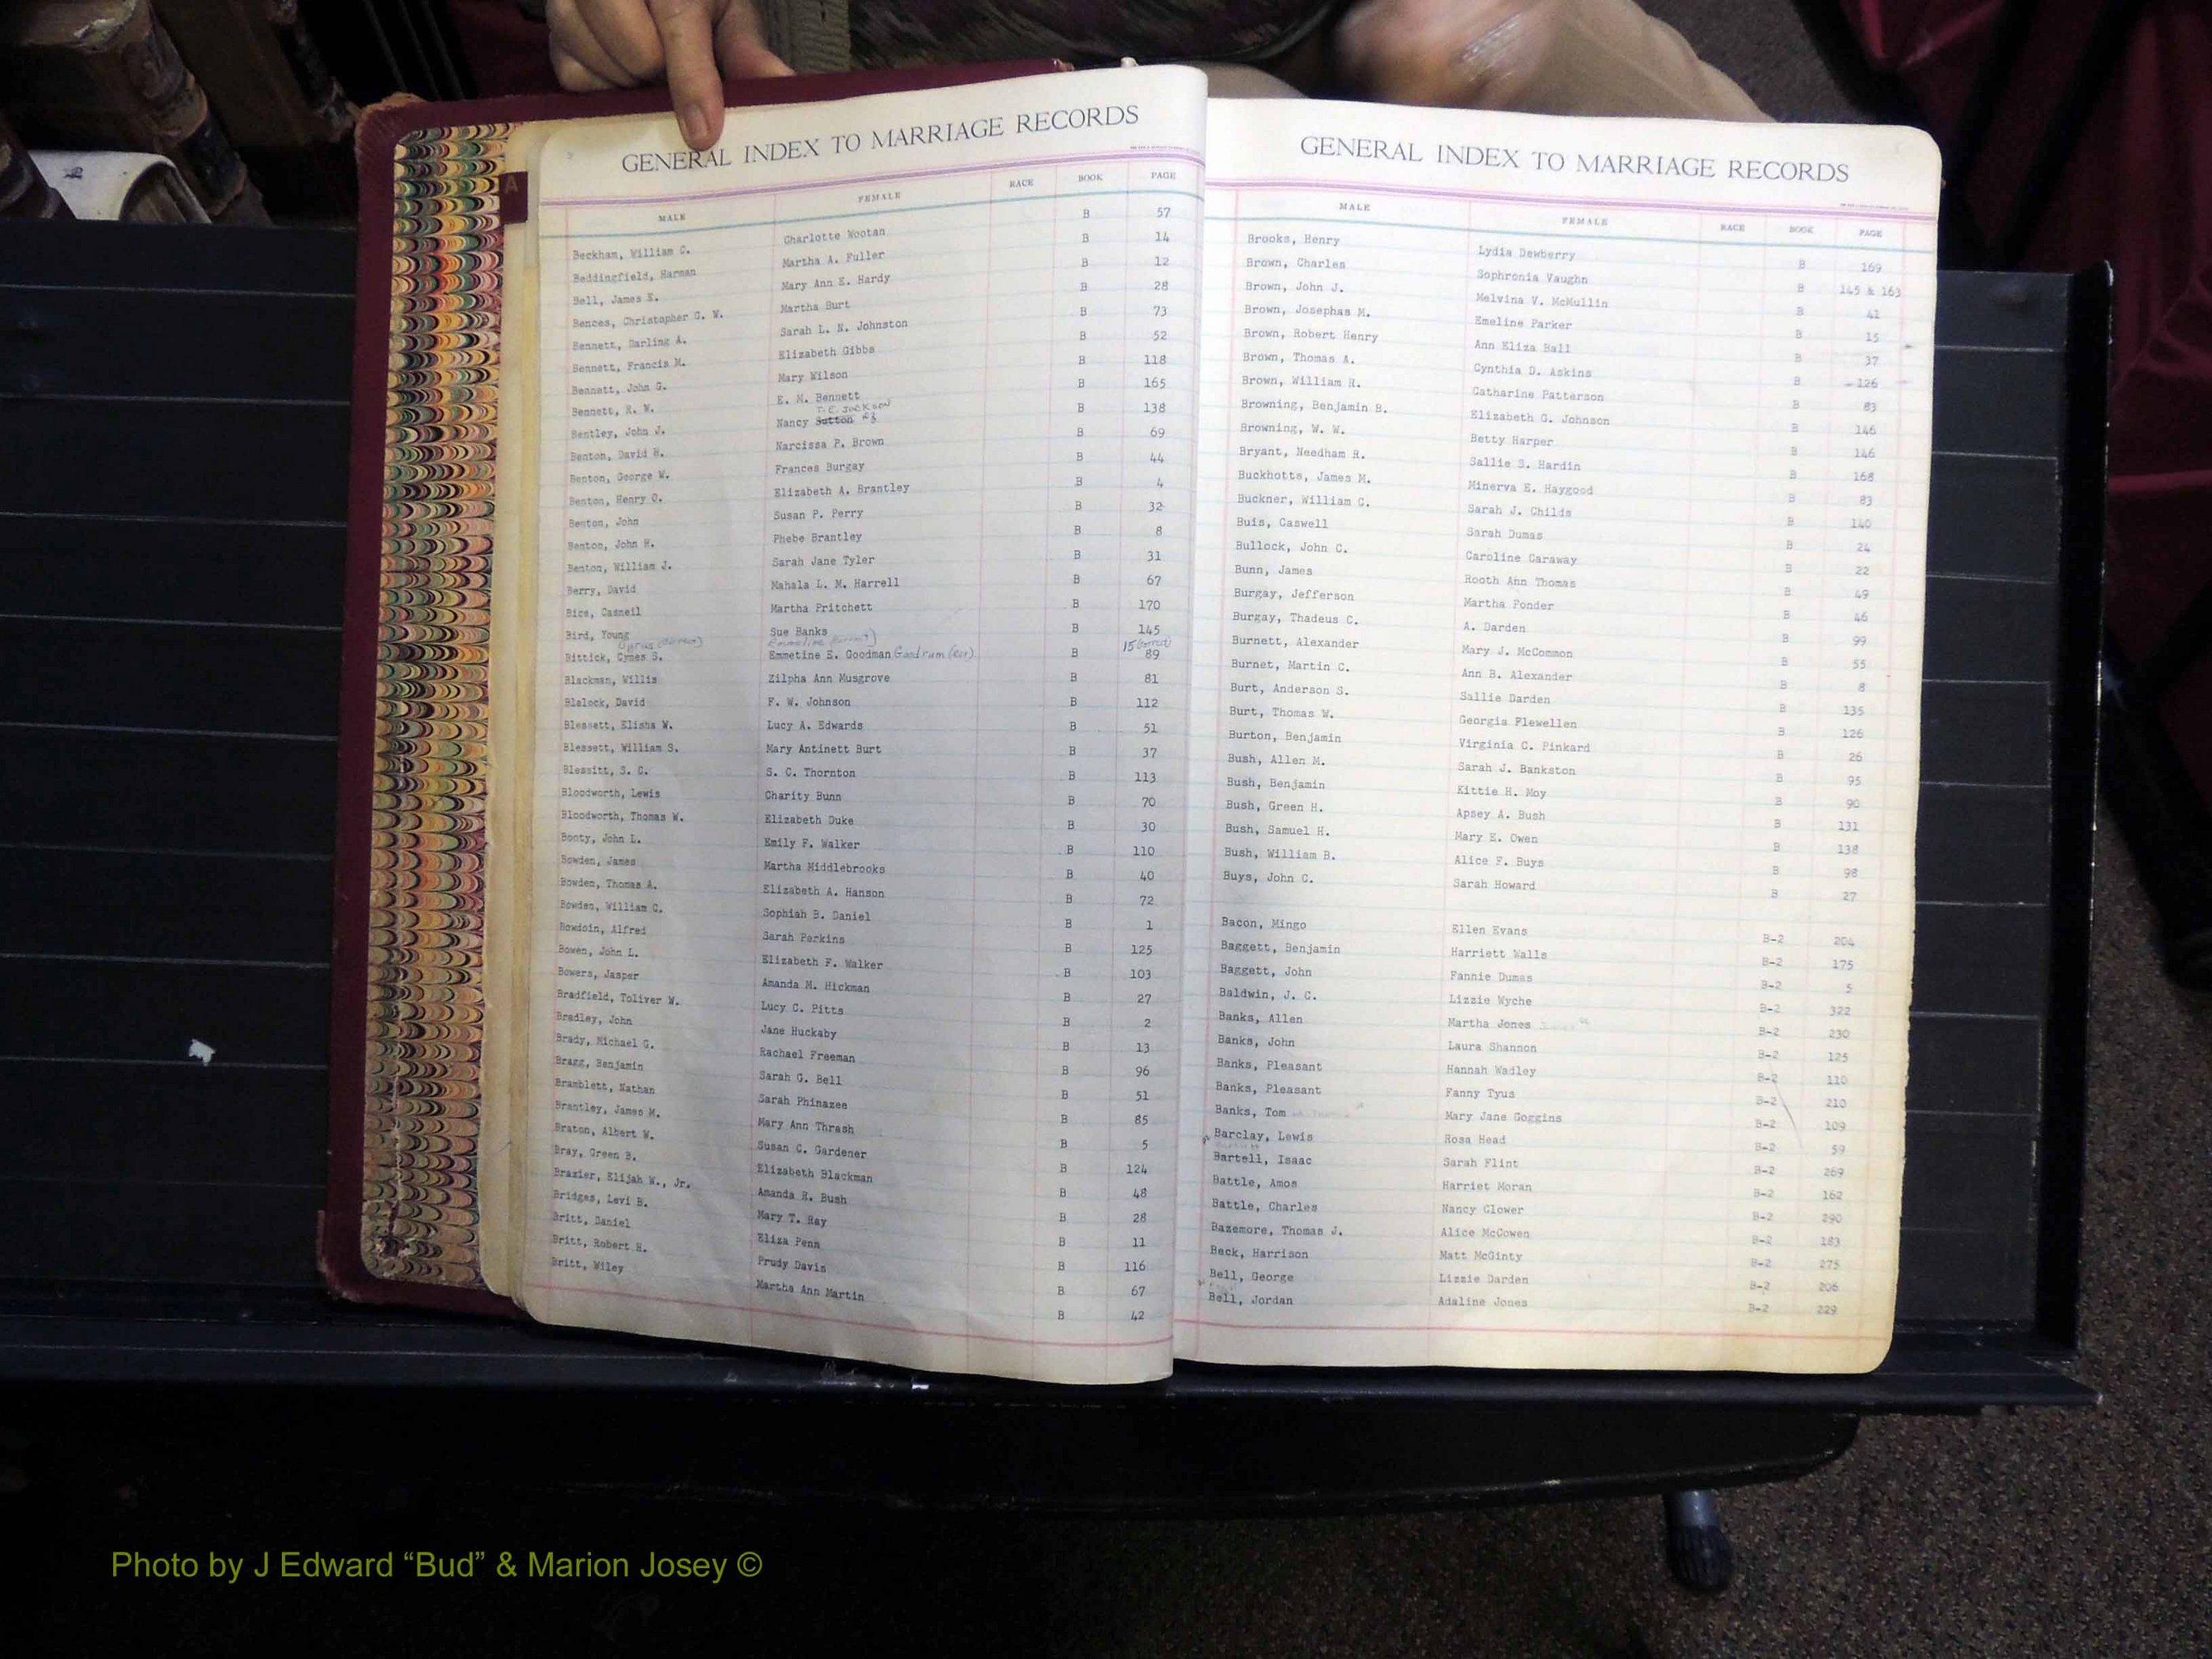 GENERAL INDEX TO MARRIAGE RECORDS
MALE FEMALE RACE BOOK PAGE
Beckham, William C. Charlotte Wootan B 57
Beddingfield, Harman Martha A. Fuller B 14
Bell, James E. Mary Ann E. Hardy B 12
Bences, Christopher G. W. Martha Burt B 28
Bennett, Darling A. Sarah L. N. Johnston B 73
Bennett, Francis M. Elizabeth Gibbs B 52
Bennett, John G. Mary Wilson B 118
Bennett, R. W. E. M. Bennett B 165
T. E. JACKSON
Bentley, John J. Nancy Sutton B 138
Benton, David H. Narcissa P. Brown B 69
Benton, George W. Frances Burgay B 44
Benton, Henry O. Elizabeth A. Brantley B 4
Benton, John Susan P. Perry B 32
Benton, John H. Phebe Brantley B 8
Benton, William J. Sarah Jane Tyler B 31
Berry, David Mahala L. M. Harrell B 67
Bice, Casneil Martha Pritchett B 170
Bird, Young Sue Banks B 145
Cyrus (correct) Emmeline (correct) 15 (correct)
Bittick, Cymes S. Emmetine E. Goodman Goodrum (cor) B 89
Blackman, Willis Zilpha Ann Musgrove B 81
Blalock, David F. W. Johnson B 112
Blessett, Elisha W. Lucy A. Edwards B 51
Blessett, William S. Mary Antinett Burt B 37
Blessitt, S. C. S. C. Thornton B 113
Bloodworth, Lewis Charity Bunn B 70
Bloodworth, Thomas W. Elizabeth Duke B 30
Booty, John L. Emily F. Walker B 110
Bowden, James Martha Middlebrooks B 40
Bowden, Thomas A. Elizabeth A. Hanson B 72
Bowden, William C. Sophiah B. Daniel B 1
Bowdoin, Alfred Sarah Perkins B 125
Bowen, John L. Elizabeth F. Walker B 103
Bowers, Jasper Amanda M. Hickman B 27
Bradfield, Toliver W. Lucy C. Pitts B 2
Bradley, John Jane Huckaby B 13
Brady, Michael G. Rachael Freeman B 96
Bragg, Benjamin Sarah G. Bell B 51
Bramblett, Nathan Sarah Phinazee B 85
Brantley, James M. Mary Ann Thrash B 5
Braton, Albert W. Susan C. Gardener B 124
Bray, Green B. Elizabeth Blackman B 48
Brazier, Elijah W., Jr. Amanda R. Bush B 28
Bridges, Levi B. Mary T. Ray B 11
Britt, Daniel Eliza Penn B 116
Britt, Robert H. Prudy Davis B 67
Britt, Wiley Martha Ann Martin B 42
GENERAL INDEX TO MARRIAGE RECORDS
MALE FEMALE RACE BOOK PAGE
Brooks, Henry Lydia Dewberry B 169
Brown, Charles Sophronia Vaughn B 145 & 163
Brown, John J. Melvina V. McMullin B 41
Brown, Josephas M. Emeline Parker B 15
Brown, Robert Henry Ann Eliza Ball B 37
Brown, Thomas A. Cynthia D. Askins B 126
Brown, William R. Catharine Patterson B 83
Browning, Benjamin B. Elizabeth G. Johnson B 146
Browning, W. W. Betty Harper B 146
Bryant, Needham R. Sallie S. Hardin B 168
Buckhotts, James M. Minerva E. Haygood B 83
Buckner, William C. Sarah J. Childs B 140
Buis, Caswell Sarah Dumas B 24
Bullock, John C. Caroline Caraway B 22
Bunn, James Rooth Ann Thomas B 49
Burgay, Jefferson Martha Ponder B 46
Burgay, Thadeus C. A. Darden B 99
Burnett, Alexander Mary J. McCommon B 55
Burnet, Martin C. Ann B. Alexander B 8
Burt, Anderson S. Sallie Darden B 135
Burt, Thomas W. Georgia Flewellen B 126
Burton, Benjamin Virginia C. Pinkard B 26
Bush, Allen M. Sarah J. Bankston B 95
Bush, Benjamin Kittie H. Moy B 90
Bush, Green H. Apsey A. Bush B 131
Bush, Samuel H. Mary E. Owen B 138
Bush, William B. Alice F. Buys B 98
Buys, John C. Sarah Howard B 27
Bacon, Mingo Ellen Evans B-2 204
Baggett, Benjamin Harriett Walls B-2 175
Baggett, John Fannie Dumas B-2 5
Baldwin, J. C. Lizzie Wyche B-2 322
Banks, Allen Martha Jones B-2 230
Banks, John Laura Shannon B-2 125
Banks, Pleasant Hannah Wadley B-2 110
Banks, Pleasant Fanny Tyus B-2 210
Banks, Tom Mary Jane Goggins B-2 109
Barclay, Lewis Rosa Head B-2 59
Bartell, Isaac Sarah Flint B-2 269
Battle, Amos Harriet Moran B-2 162
Battle, Charles Nancy Clower B-2 290
Bazemore, Thomas J. Alice McCowen B-2 183
Beck, Harrison Matt McGinty B-2 275
Bell, George Lizzie Darden B-2 206
Bell, Jordan Adaline Jones B-2 229
Photo by J Edward “Bud” & Marion Josey ©